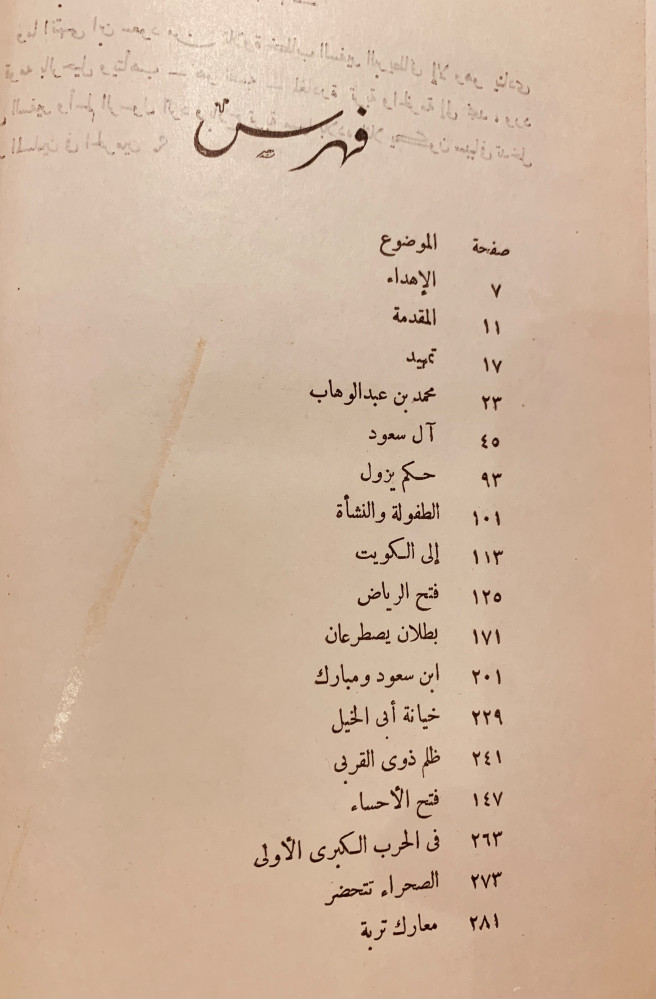 فهرس
صفحة الموضوع
٧ الإهداء
١١ المقدمة
١٧ تمهيد
٢٣ محمد بن عبدالوهاب
٤٥ آل سعود
٩٣ حكم يزول
١٠١ الطفولة والنشأة
١١٣ إلى الكويت
١٢٥ فتح الرياض
١٧١ بطلان يصطرعان
٢٠١ ابن سعود ومبارك
٢٢٩ خيانة أبى الخيل
٢٤١ ظلم ذوى القربى
١٤٧ فتح الأحساء
٢٦٣ فى الحرب الكبرى الأولى
٢٧٣ الصحراء تتحضر
٢٨١ معارك تربة